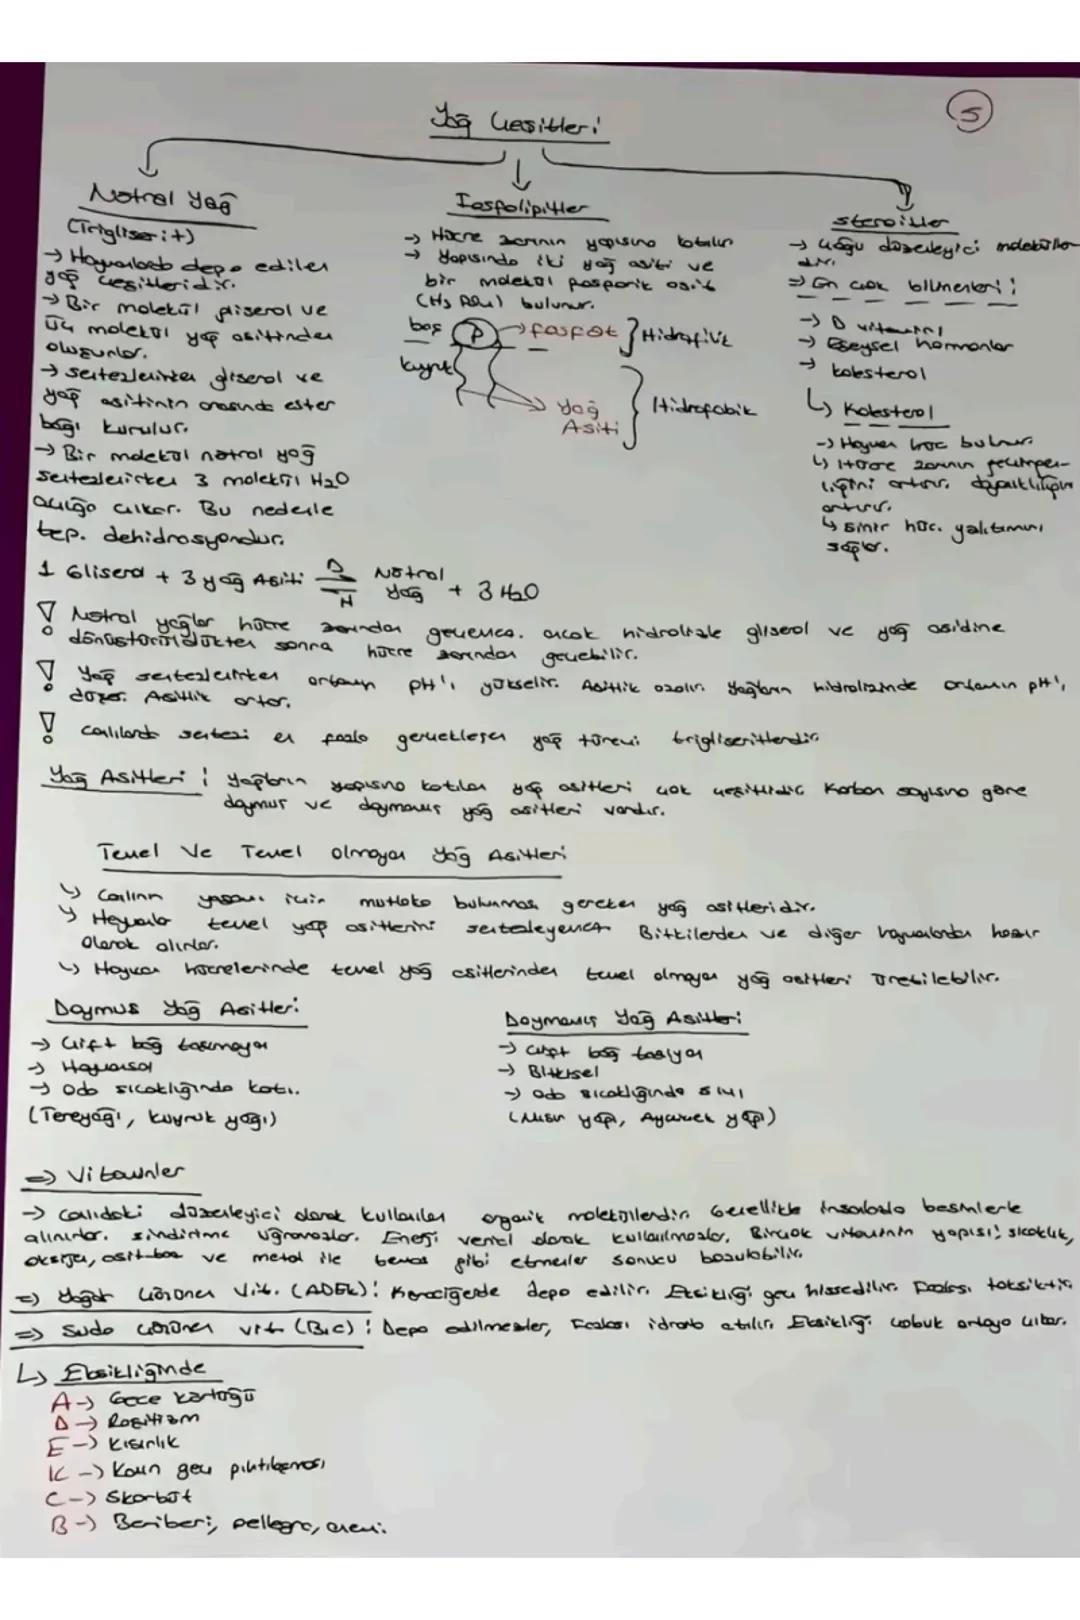 Yağ Çeşitleri
5
Nötral Yağ
(Trigliserit)
→ Hayvanlarda depo edilen
yağ çeşitleridir.
→ Bir molekül gliserol ve
üç molekül yağ asitinden
oluşurlar.
→ Sentezlenirken gliserol ve
yağ asitinin arasında ester
bağı kurulur.
→ Bir molekül nötral yağ
sentezlenirken 3 molekül H2O
açığa çıkar. Bu nedenle
tep. dehidrasyondur.
Fosfolipitler
→ Hücre zarının yapısına katılır
→ Yapısında iki yağ asiti ve
bir molekül fosforik asit
(H3PO4) bulunur.
baş P → fosfat } Hidrofilik
kuyruk
→ Yağ Asiti } Hidrofobik
Steroitler
→ Çoğu düzenleyici moleküller
dir.
⇒ En çok bilinenleri:
→ D vitamini
→ Eşeysel hormonlar
→ kolesterol
↳ Kolesterol
→ Hayvan hüc bulunur.
↳ Hücre zarının geçirgen-
liğini artırır, dayanıklılığını
artırır.
↳ Sinir hüc. yalıtımını
sağlar.
1 Gliserol + 3 yağ Asiti D ⇌ H Nötral Yağ + 3 H2O
! Nötral yağlar hücre zarından geçemez. ancak hidrolizle gliserol ve yağ asidine
dönüştürüldükten sonra hücre zarından geçebilir.
! Yağ sentezlenirken ortamın pH'ı yükselir. Asitlik azalır. Yağların hidrolizinde ortamın pH'ı
düşer. Asitlik artar.
! Canlılarda sentezi en fazla gerçekleşen yağ türevi trigliseritlerdir
Yağ Asitleri : Yağların yapısına katılan yağ asitleri çok çeşitlidir Karbon sayısına göre
doymuş ve doymamış yağ asitleri vardır.
Temel Ve Temel olmayan Yağ Asitleri
↳ Canlının yaşamı için mutlaka bulunması gereken yağ asitleridir.
↳ Hayvanlar temel yağ asitlerini sentezleyemez. Bitkilerden ve diğer hayvanlardan hazır
olarak alırlar.
↳ Hayvan hücrelerinde temel yağ asitlerinden temel olmayan yağ asitleri üretilebilir.
Doymuş Yağ Asitleri
→ Çift bağ taşımayan
→ Hayvansal
→ Oda sıcaklığında katı.
(Tereyağı, kuyruk yağı)
Doymamış Yağ Asitleri
→ Çift bağ taşıyan
→ Bitkisel
→ Oda sıcaklığında sıvı
(Mısır yağı, Ayçiçek yağı)
⇒ Vitaminler
→ Canlıdaki düzenleyici olarak kullanılan organik moleküllerdir. Genellikle insanlarda besinlerle
alınırlar. sindirime uğramazlar. Enerji verici olarak kullanılmazlar. Birçok vitaminin yapısı; sıcaklık,
oksijen, asit-baz ve metal ile temas gibi etmenler sonucu bozulabilir.
⇒ Yağda Çözünen Vit. (ADEK): Karaciğerde depo edilir. Eksikliği geç hissedilir. Fazlası toksiktir.
⇒ Suda Çözünen vit (B,C): Depo edilmezler, Fazlası idrarla atılır. Eksikliği çabuk ortaya çıkar.
↳ Eksikliğinde
A → Gece körlüğü
D → Raşitizm
E → Kısırlık
K → Kanın geç pıhtılaşması
C → Skorbüt
B → Beriberi, pellegra, anemi.